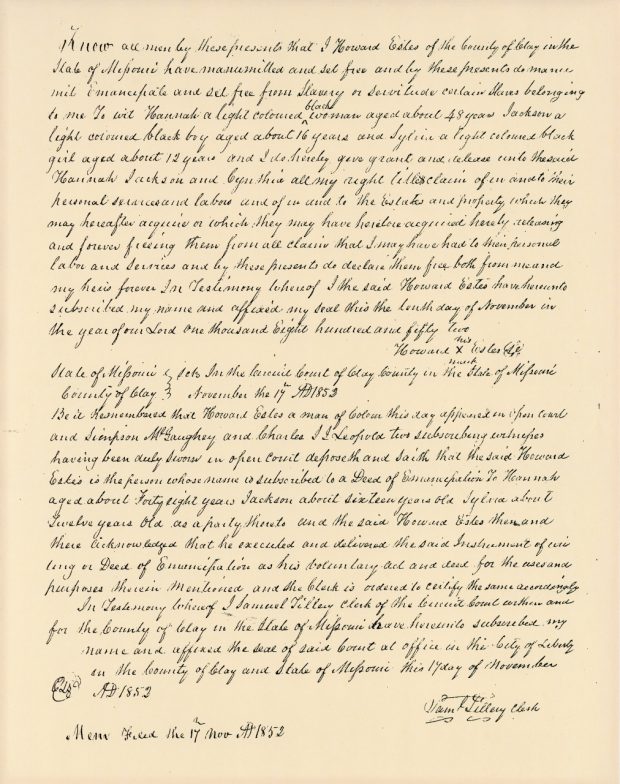 Know all men by these presents that I Howard Estes of the County of Clay in the
State of Missouri have manumitted and set free and by these presents do manu
mit Emancipate and set free from Slavery or servitude certain Slaves belonging
to me To wit Hannah a light coloured black woman aged about 48 years Jackson a
light coloured black boy aged about 16 years and Sylvia a light coloured black
girl aged about 12 years and I do hereby give grant and release unto the said
Hannah Jackson and Cynthia all my right title & claim of in and to their
personal services and labors and of in and to the Estate and property which they
may hereafter acquire or which they may have heretofore acquired hereby releasing
and forever freeing them from all claim that I may have had to their personal
labor and services and by these presents do declare them free both from me and
my heirs forever In Testimony whereof I the said Howard Estes have hereunto
subscribed my name and affixed my seal this the tenth day of November in
the year of our Lord One thousand Eight hundred and fifty two
Howard his X mark Estes
State of Missouri } Sct. In the Circuit Court of Clay County in the State of Missouri
County of Clay } November the 17th AD 1852
Be it Remembered that Howard Estes a man of Colour this day appeared in open court
and Simpson McGaughey and Charles J Leopold two subscribing witnesses
having been duly sworn in open court deposeth and saith that the said Howard
Estes is the person whose name is subscribed to a Deed of Emancipation To Hannah
aged about Forty eight years Jackson about sixteen years Old Sylvia about
Twelve years Old as a party thereto and the said Howard Estes then and
there acknowledged that he executed and delivered the said Instrument of wri
ting or Deed of Emancipation as his voluntary act and deed for the uses and
purposes therein Mentioned and the Clerk is ordered to certify the same accordingly
In Testimony whereof I Samuel Tillery Clerk of the Circuit Court within and
for the County of Clay in the State of Missouri have hereunto subscribed my
name and affixed the seal of said Court at office in the City of Liberty
in the County of Clay and State of Missouri this 17 day of November
AD 1852
Saml Tillery Clerk
Mem Filed the 17th Nov AD 1852